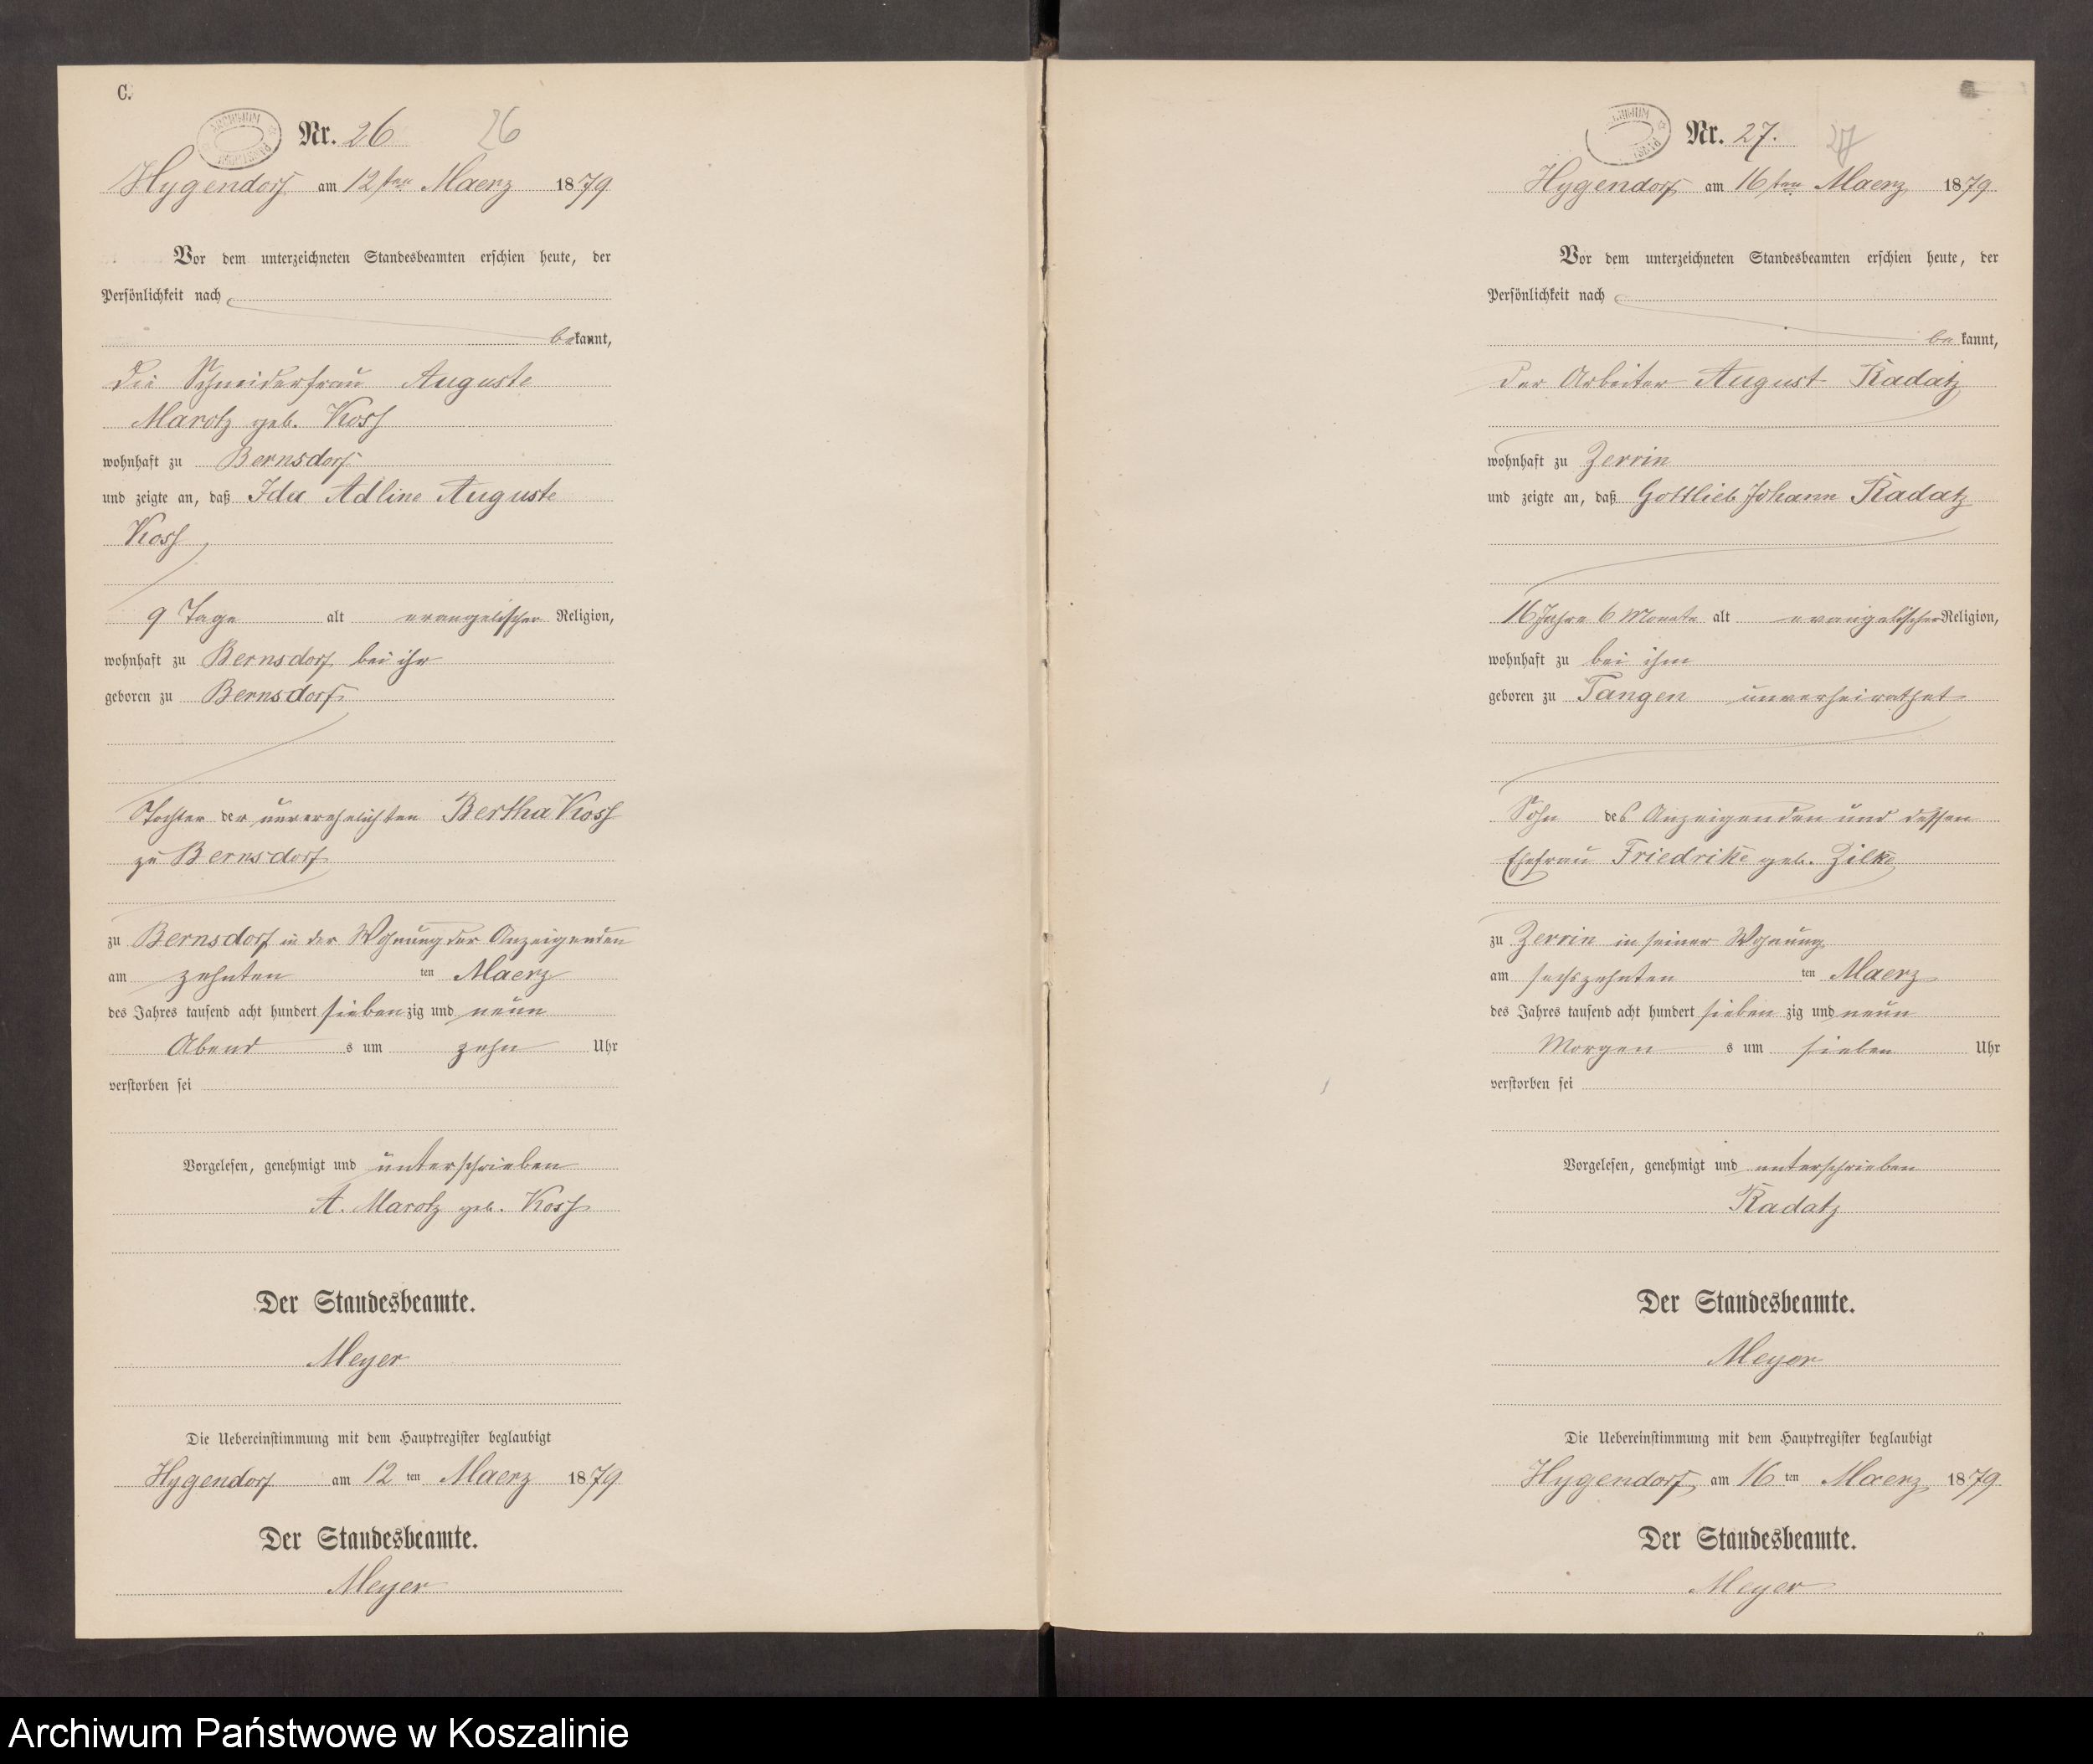 C.
ARCHIWUM
Nr. 26 26
Hygendorf am 12ten Maerz 1879
Vor dem unterzeichneten Standesbeamten erschien heute, der
Persönlichkeit nach
bekannt,
die Schneiderfrau Auguste
Marotz geb. Koss
wohnhaft zu Bernsdorf
und zeigte an, daß Ida Adline Auguste
Koss
9 Tage alt evangelischer Religion,
wohnhaft zu Bernsdorf bei ihr
geboren zu Bernsdorf
Tochter der unverehelichten Bertha Koss
zu Bernsdorf
zu Bernsdorf in der Wohnung der Anzeigenden
am zehnten ten Maerz
des Jahres tausend acht hundert siebenzig und neun
Abend s um zehn Uhr
verstorben sei
Vorgelesen, genehmigt und unterschrieben
A. Marotz geb. Koss
Der Standesbeamte.
Meyer
Die Uebereinstimmung mit dem Hauptregister beglaubigt
Hygendorf am 12 ten Maerz 1879
Der Standesbeamte.
Meyer
Nr. 27. 27
Hygendorf am 16ten Maerz 1879
Vor dem unterzeichneten Standesbeamten erschien heute, der
Persönlichkeit nach
bekannt,
der Arbeiter August Radatz
wohnhaft zu Zerrin
und zeigte an, daß Gottlieb Johann Radatz
16 Jahre 6 Monate alt evangelischer Religion,
wohnhaft zu bei ihm
geboren zu Tangen unverheirathet
Sohn des Anzeigenden und dessen
Ehefrau Friedrike geb. Zilke
zu Zerrin in seiner Wohnung
am sechszehnten ten Maerz
des Jahres tausend acht hundert sieben zig und neun
Morgen s um sieben Uhr
verstorben sei
Vorgelesen, genehmigt und unterschrieben
Radatz
Der Standesbeamte.
Meyer
Die Uebereinstimmung mit dem Hauptregister beglaubigt
Hygendorf am 16 ten Maerz 1879
Der Standesbeamte.
Meyer
Archiwum Państwowe w Koszalinie